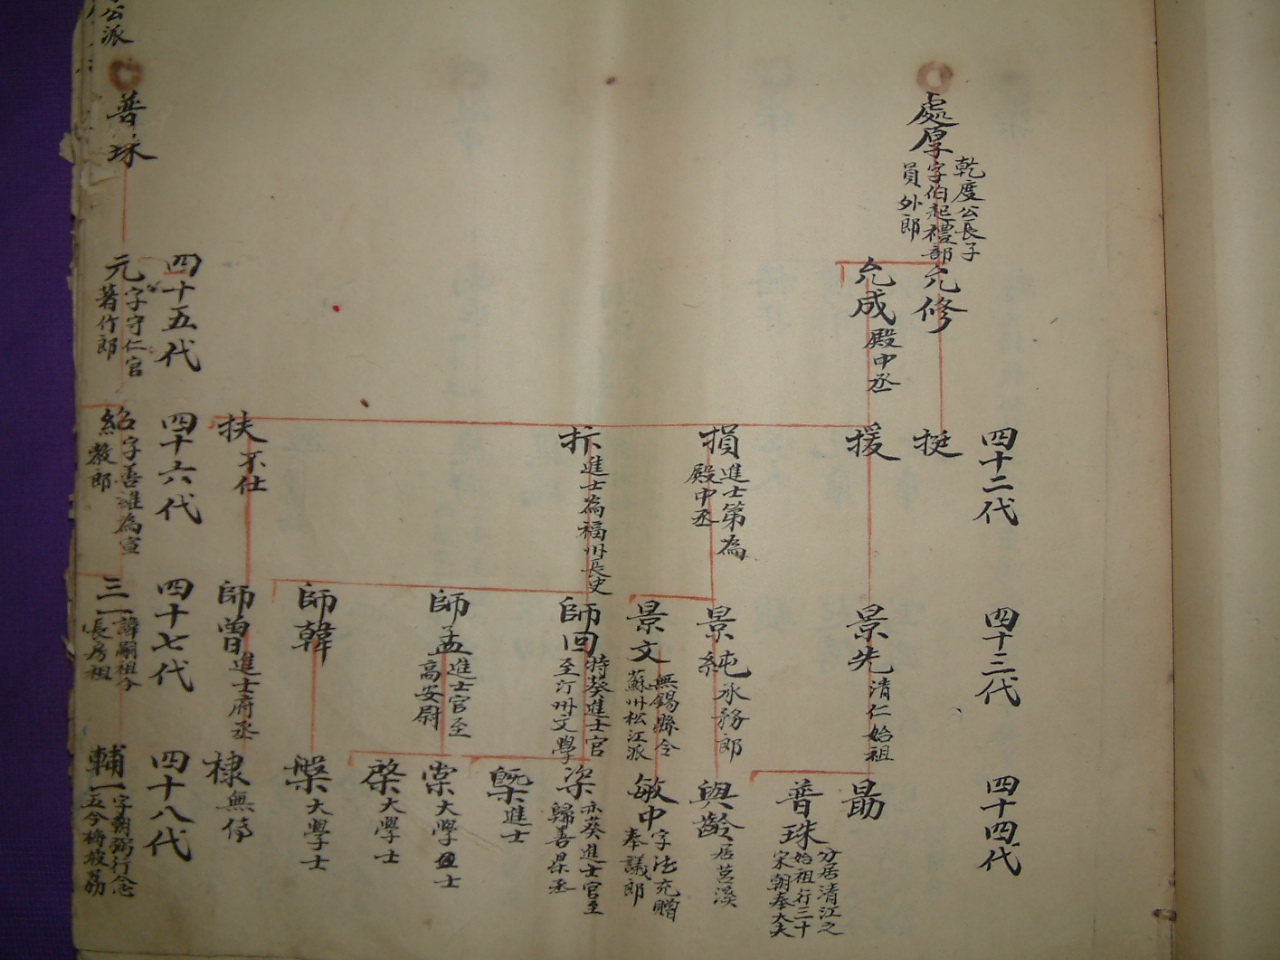 處厚
乾度公長子
字伯起禮部
員外郎
允修
允成
殿中丞
四十二代
挺
援
損
進士第為
殿中丞
折
進士為福州長史
扶
不仕
四十三代
景先
清仁始祖
景純
承務郎
景文
無錫縣令
蘇州松江派
師回
特葵進士官
至汀州文學
師孟
進士官至
高安尉
師韓
師曾
進士府丞
四十四代
勗
普珠
分居清江之
始祖行三十
宋朝奉大夫
與齡
居莒溪
敏中
字法充贈
奉議郎
梁
亦葵進士官至
歸善縣丞
槩
進士
棠
大學士
棨
大學士
槃
大學士
棣
無傳
公派
普珠
四十五代
元
字守仁官
著作郎
四十六代
紹
字善淮為宣
教郎
四十七代
三一
諱嗣祖今
長房祖
四十八代
輔一
字朝弼行念
五今梅坡荔